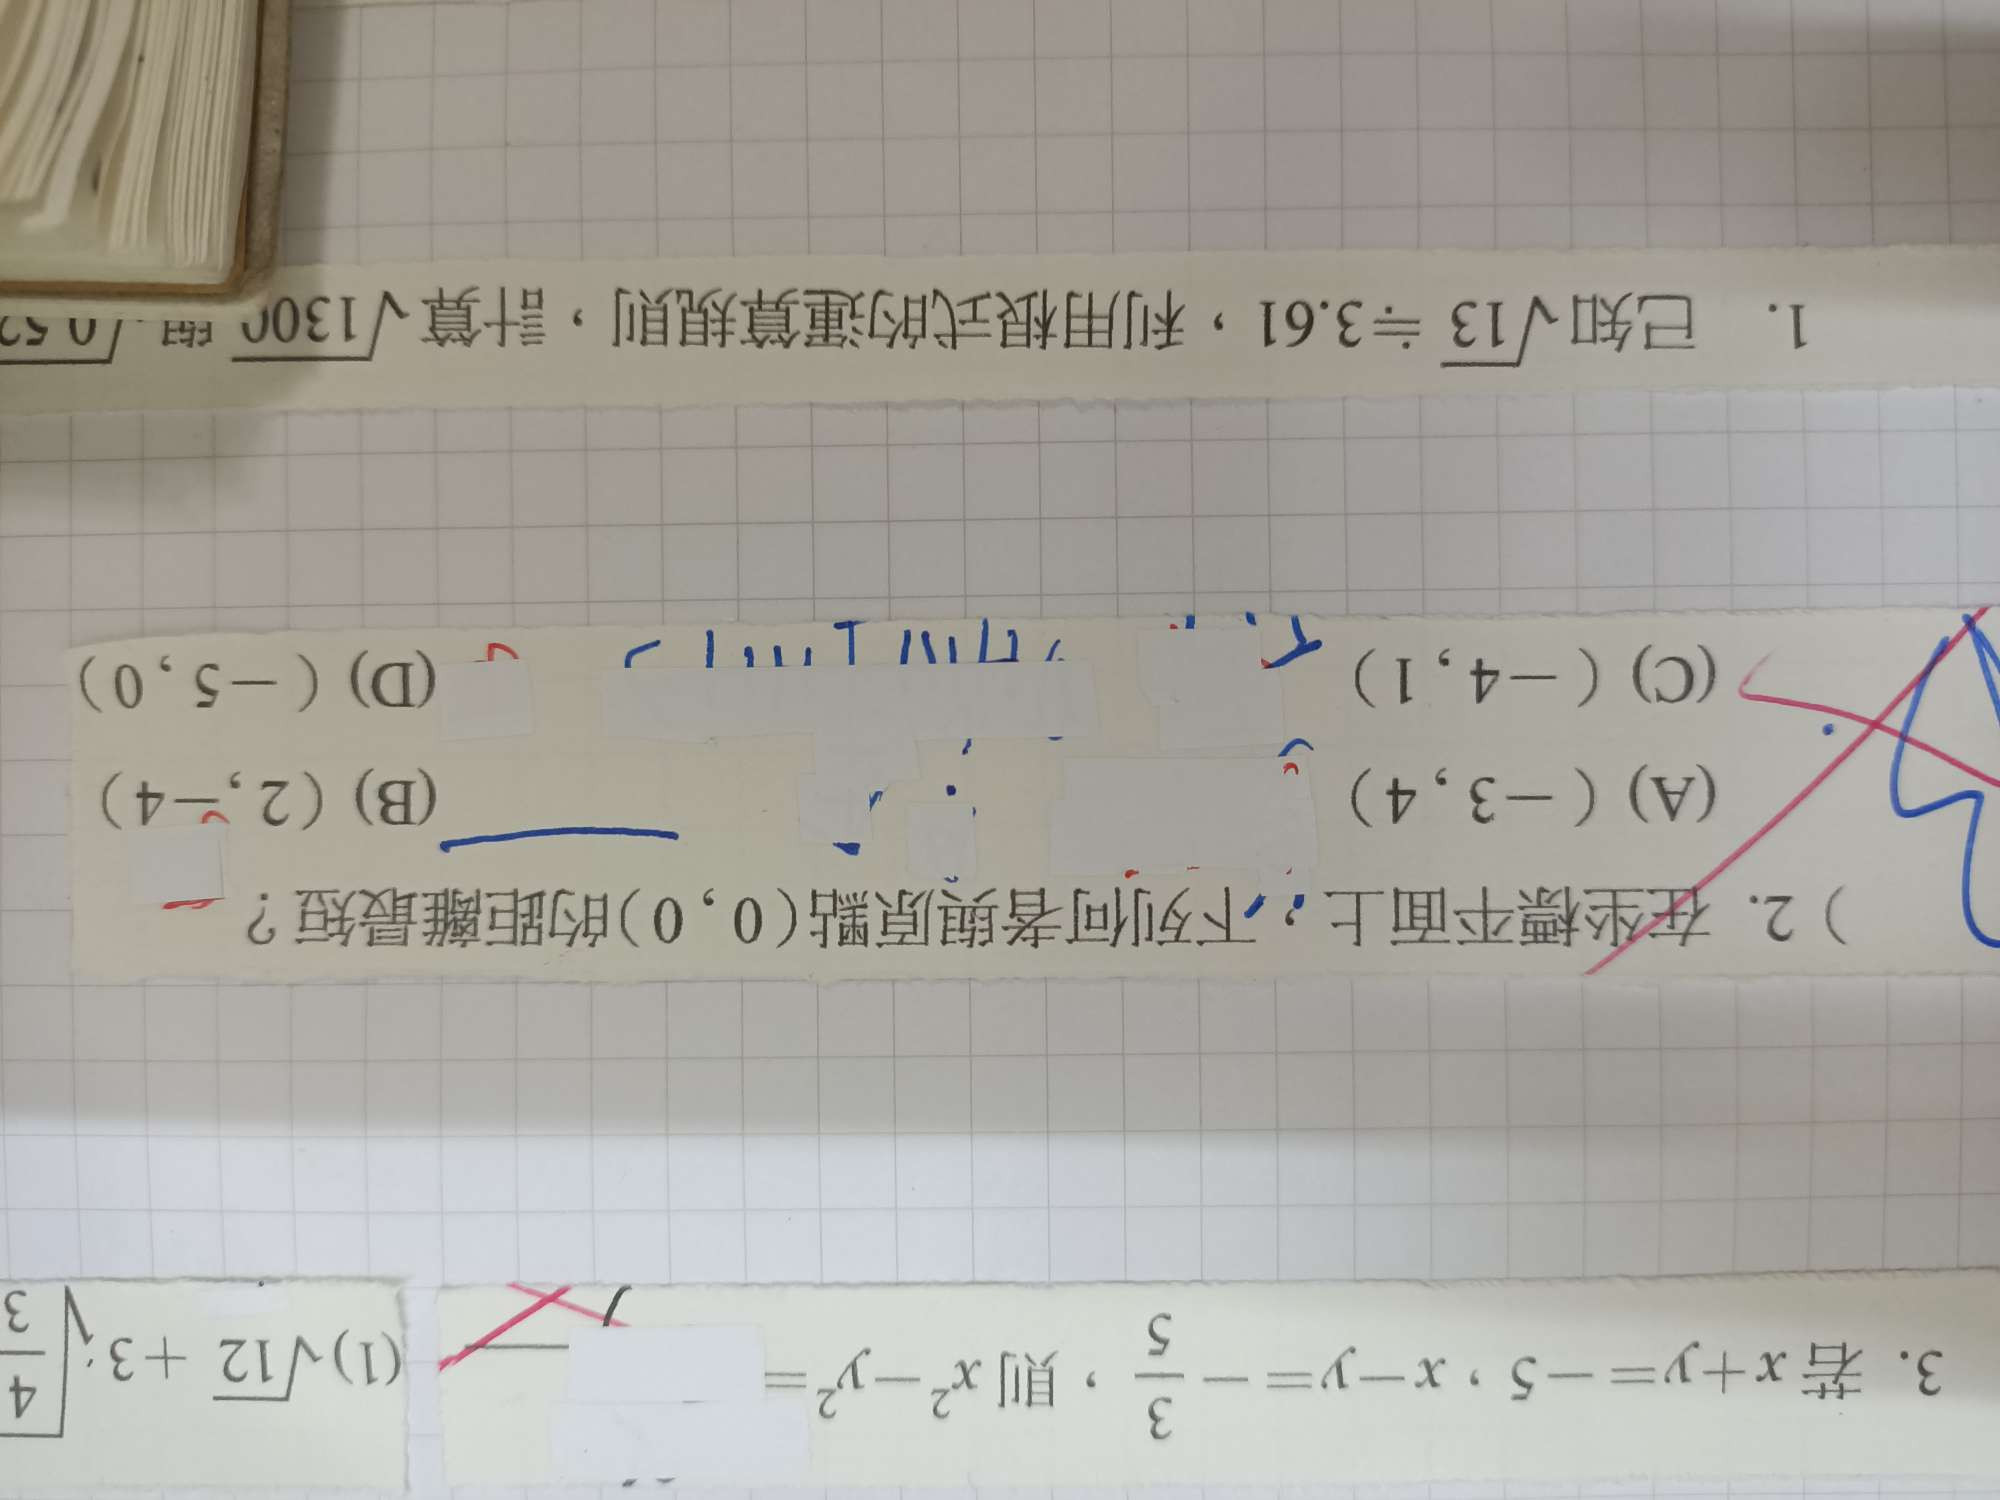 3. 若 x+y=-5，x-y=-3/5，則 x²-y²=
(1)√12 + 3√(4/3)
) 2. 在坐標平面上，下列何者與原點(0, 0)的距離最短？
(A) (-3, 4) (B) (2, -4)
(C) (-4, 1) (D) (-5, 0)
1. 已知√13≒3.61，利用根式的運算規則，計算√1300 與 √0.52